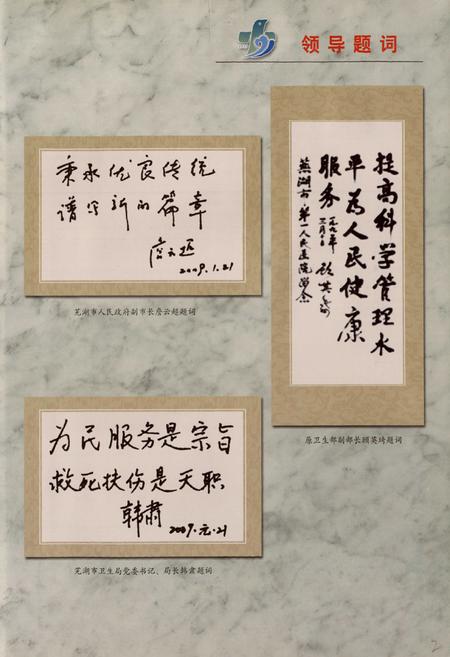 领导题词
秉承优良传统
谱写新的篇章
詹云超
2009.1.21
芜湖市人民政府副市长詹云超题词
为民服务是宗旨
救死扶伤是天职
韩肃
2009.元.21
芜湖市卫生局党委书记、局长韩肃题词
提高科学管理水
平为人民健康
服务
顾英奇
芜湖市第一人民医院
原卫生部副部长顾英琦题词
2